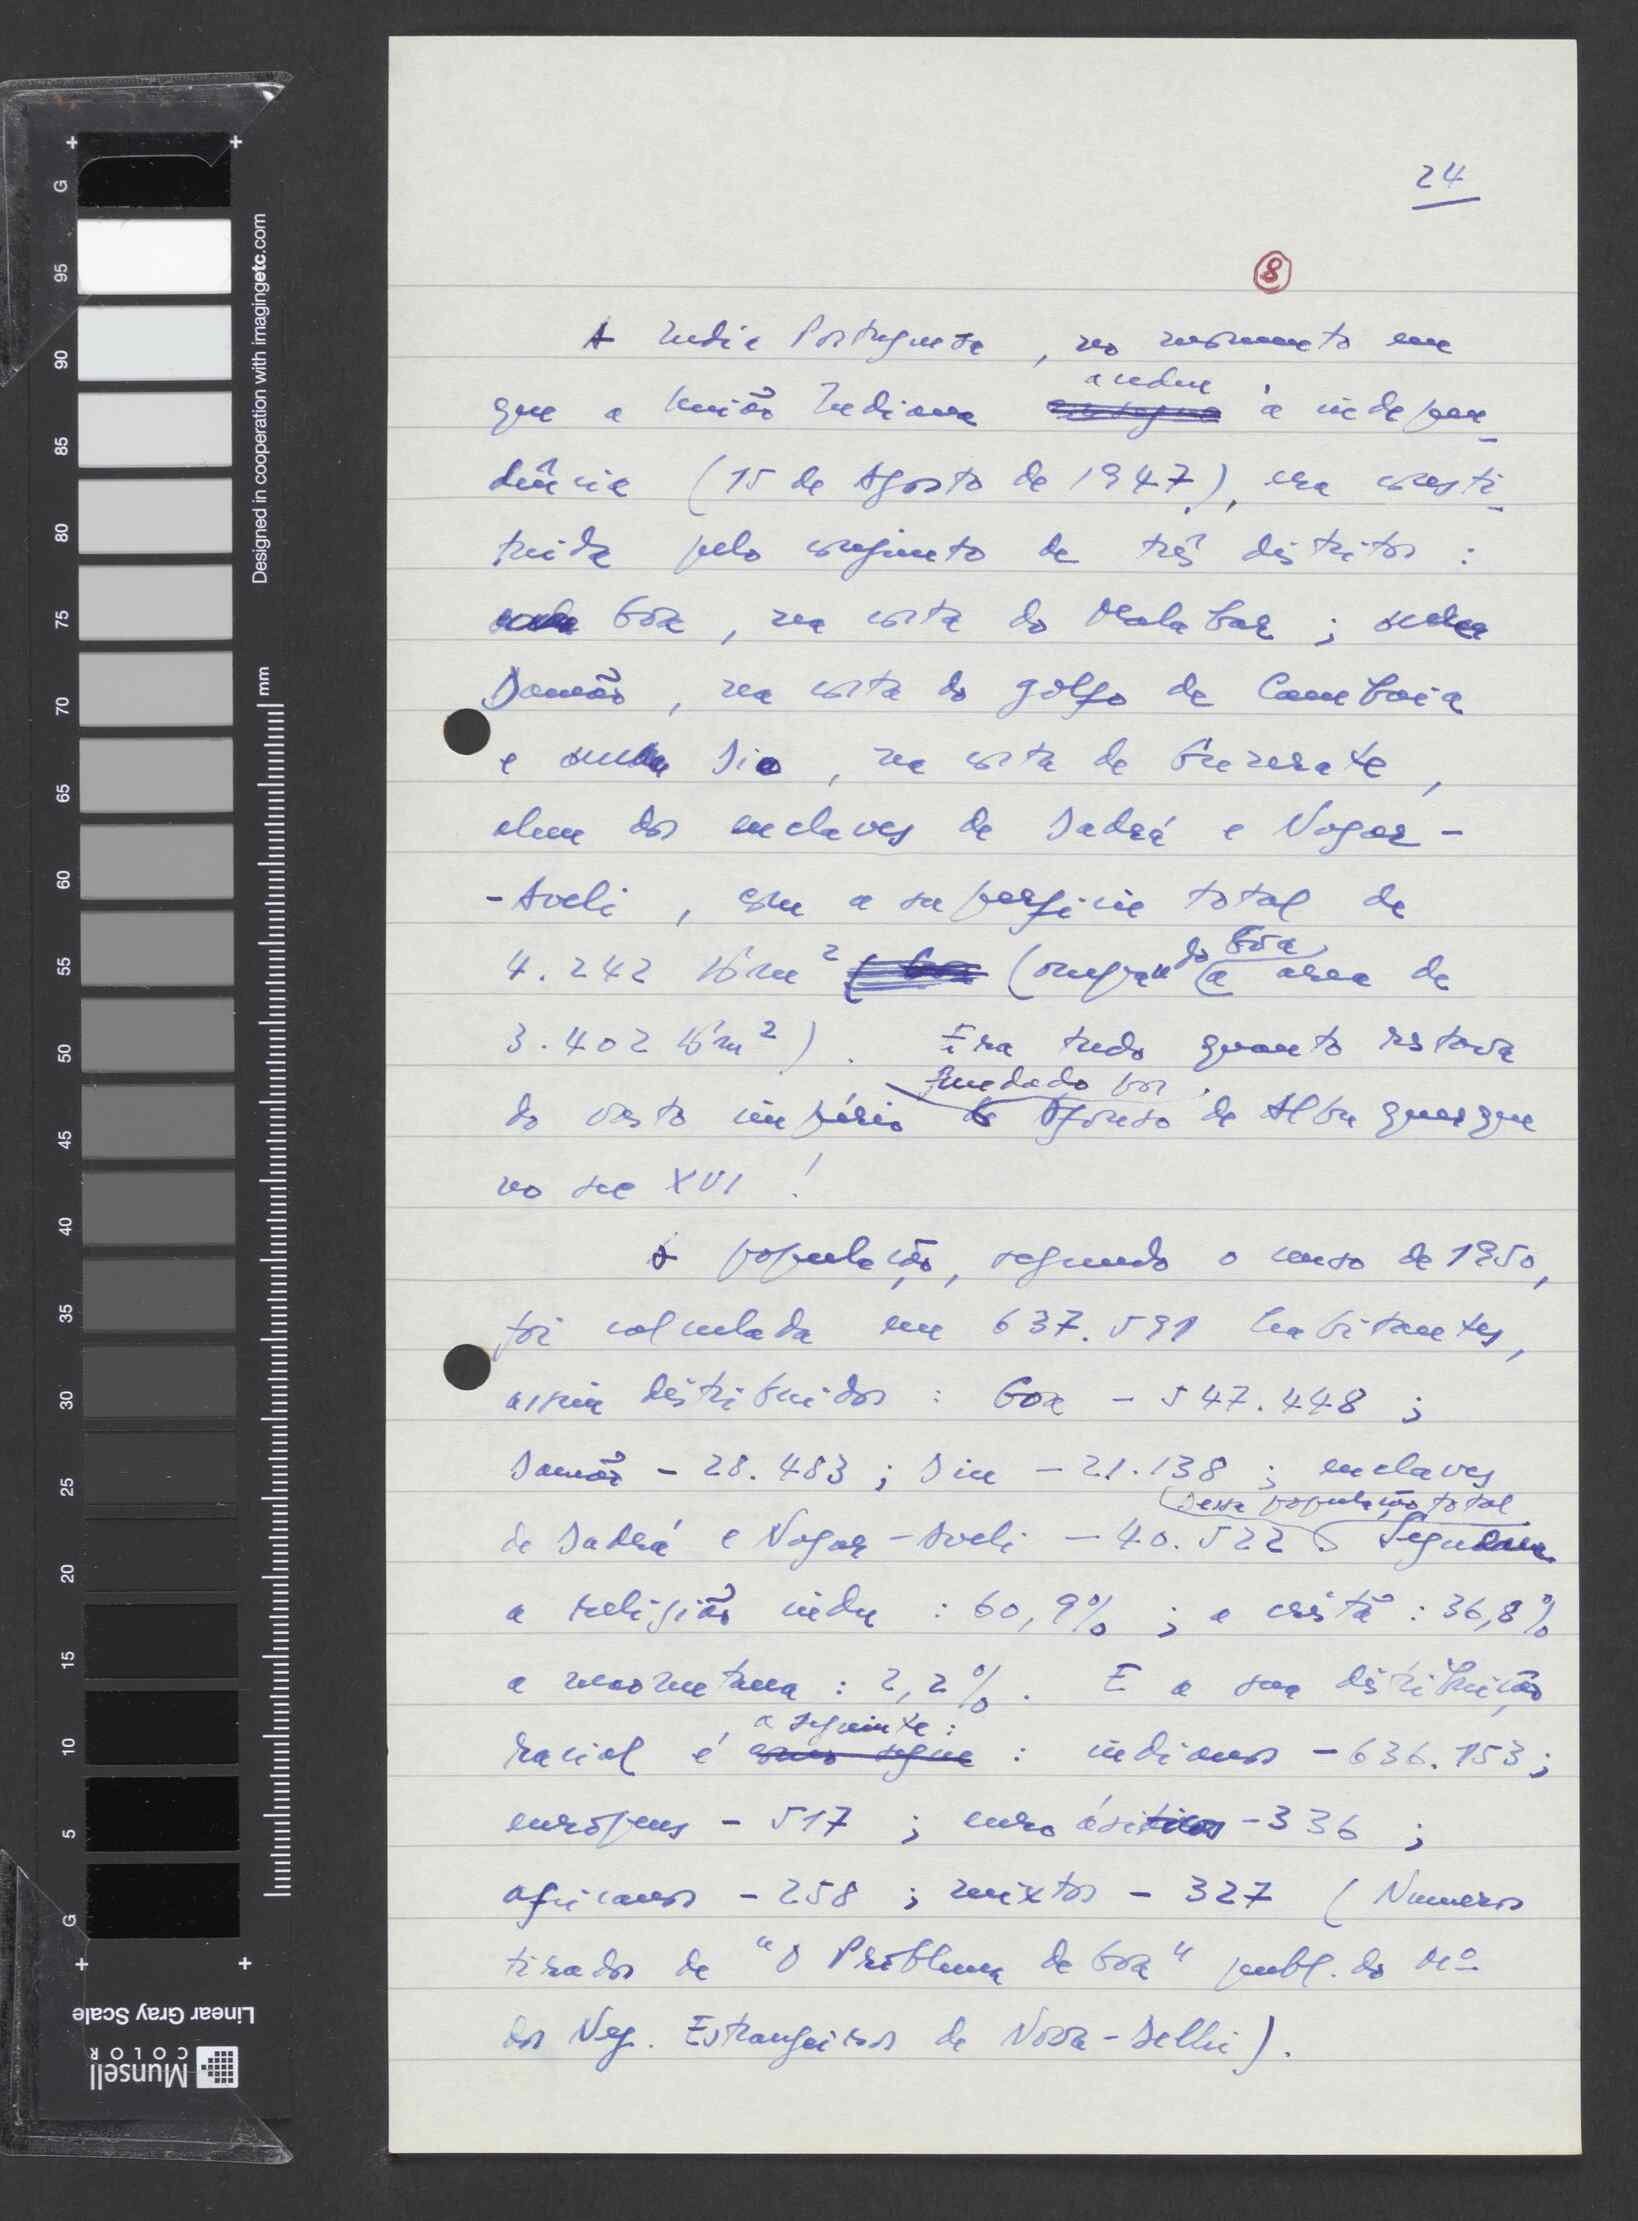 24
8
A India Portuguesa, no momento em
que a União Indiana acedeu à indepen-
dência (15 de Agosto de 1947), era consti-
tuida pelo conjunto de três distritos :
Gôa, na costa do Malabar ;
Damão, na costa do golfo de Cambaia
e Dio, na costa de Guzerate,
alem dos enclaves de Dadrá e Nagar-
-Aveli, com a superficie total de
4.242 Km² (ocupando Gôa a area de
3.402 Km²). Era tudo quanto restava
do vasto império fundado por Afonso de Albuquerque
no sec XVI !
A população, segundo o censo de 1950,
foi calculada em 637.591 habitantes,
assim distribuidos : Goa - 547.448 ;
Damão - 28.483 ; Diu - 21.138 ; enclaves
de Dadrá e Nagar-Aveli - 40.522. Dessa população total
a religião indu : 60,9% ; a cristã : 36,8%
a maometana : 2,2%. E a sua distribuição
racial é a seguinte : indianos - 636.153 ;
europeus - 517 ; euro - 336 ;
africanos - 258 ; mixtos - 327 (Numeros
tirados de "O Problema de Goa" publ. do Mº
dos Neg. Estrangeiros de Nova-Delhi).
Designed in cooperation with imagingetc.com
mm
G
95
90
85
80
75
70
65
60
55
50
45
40
35
30
25
20
15
10
5
G
Linear Gray Scale
Munsell
COLOR